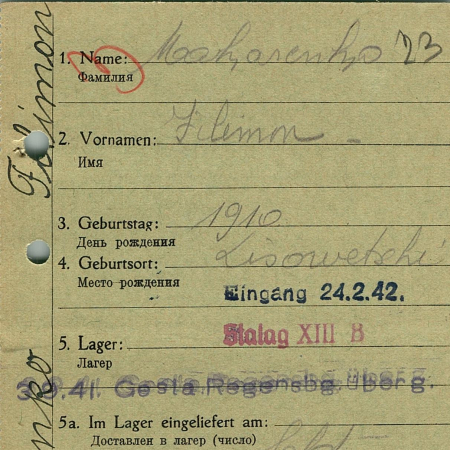 1. Name: Makarenko 23
Фамилия
2. Vornamen: Filimon
Имя
3. Geburtstag: 1910
День рождения
4. Geburtsort: Lisowetschi
Место рождения
Eingang 24.2.42.
5. Lager: Stalag XIII B
Лагер
3.9.41. Gesta Regensbg. überg.
5a. Im Lager eingeliefert am:
Доставлен в лагер (число)
Filimon
nko